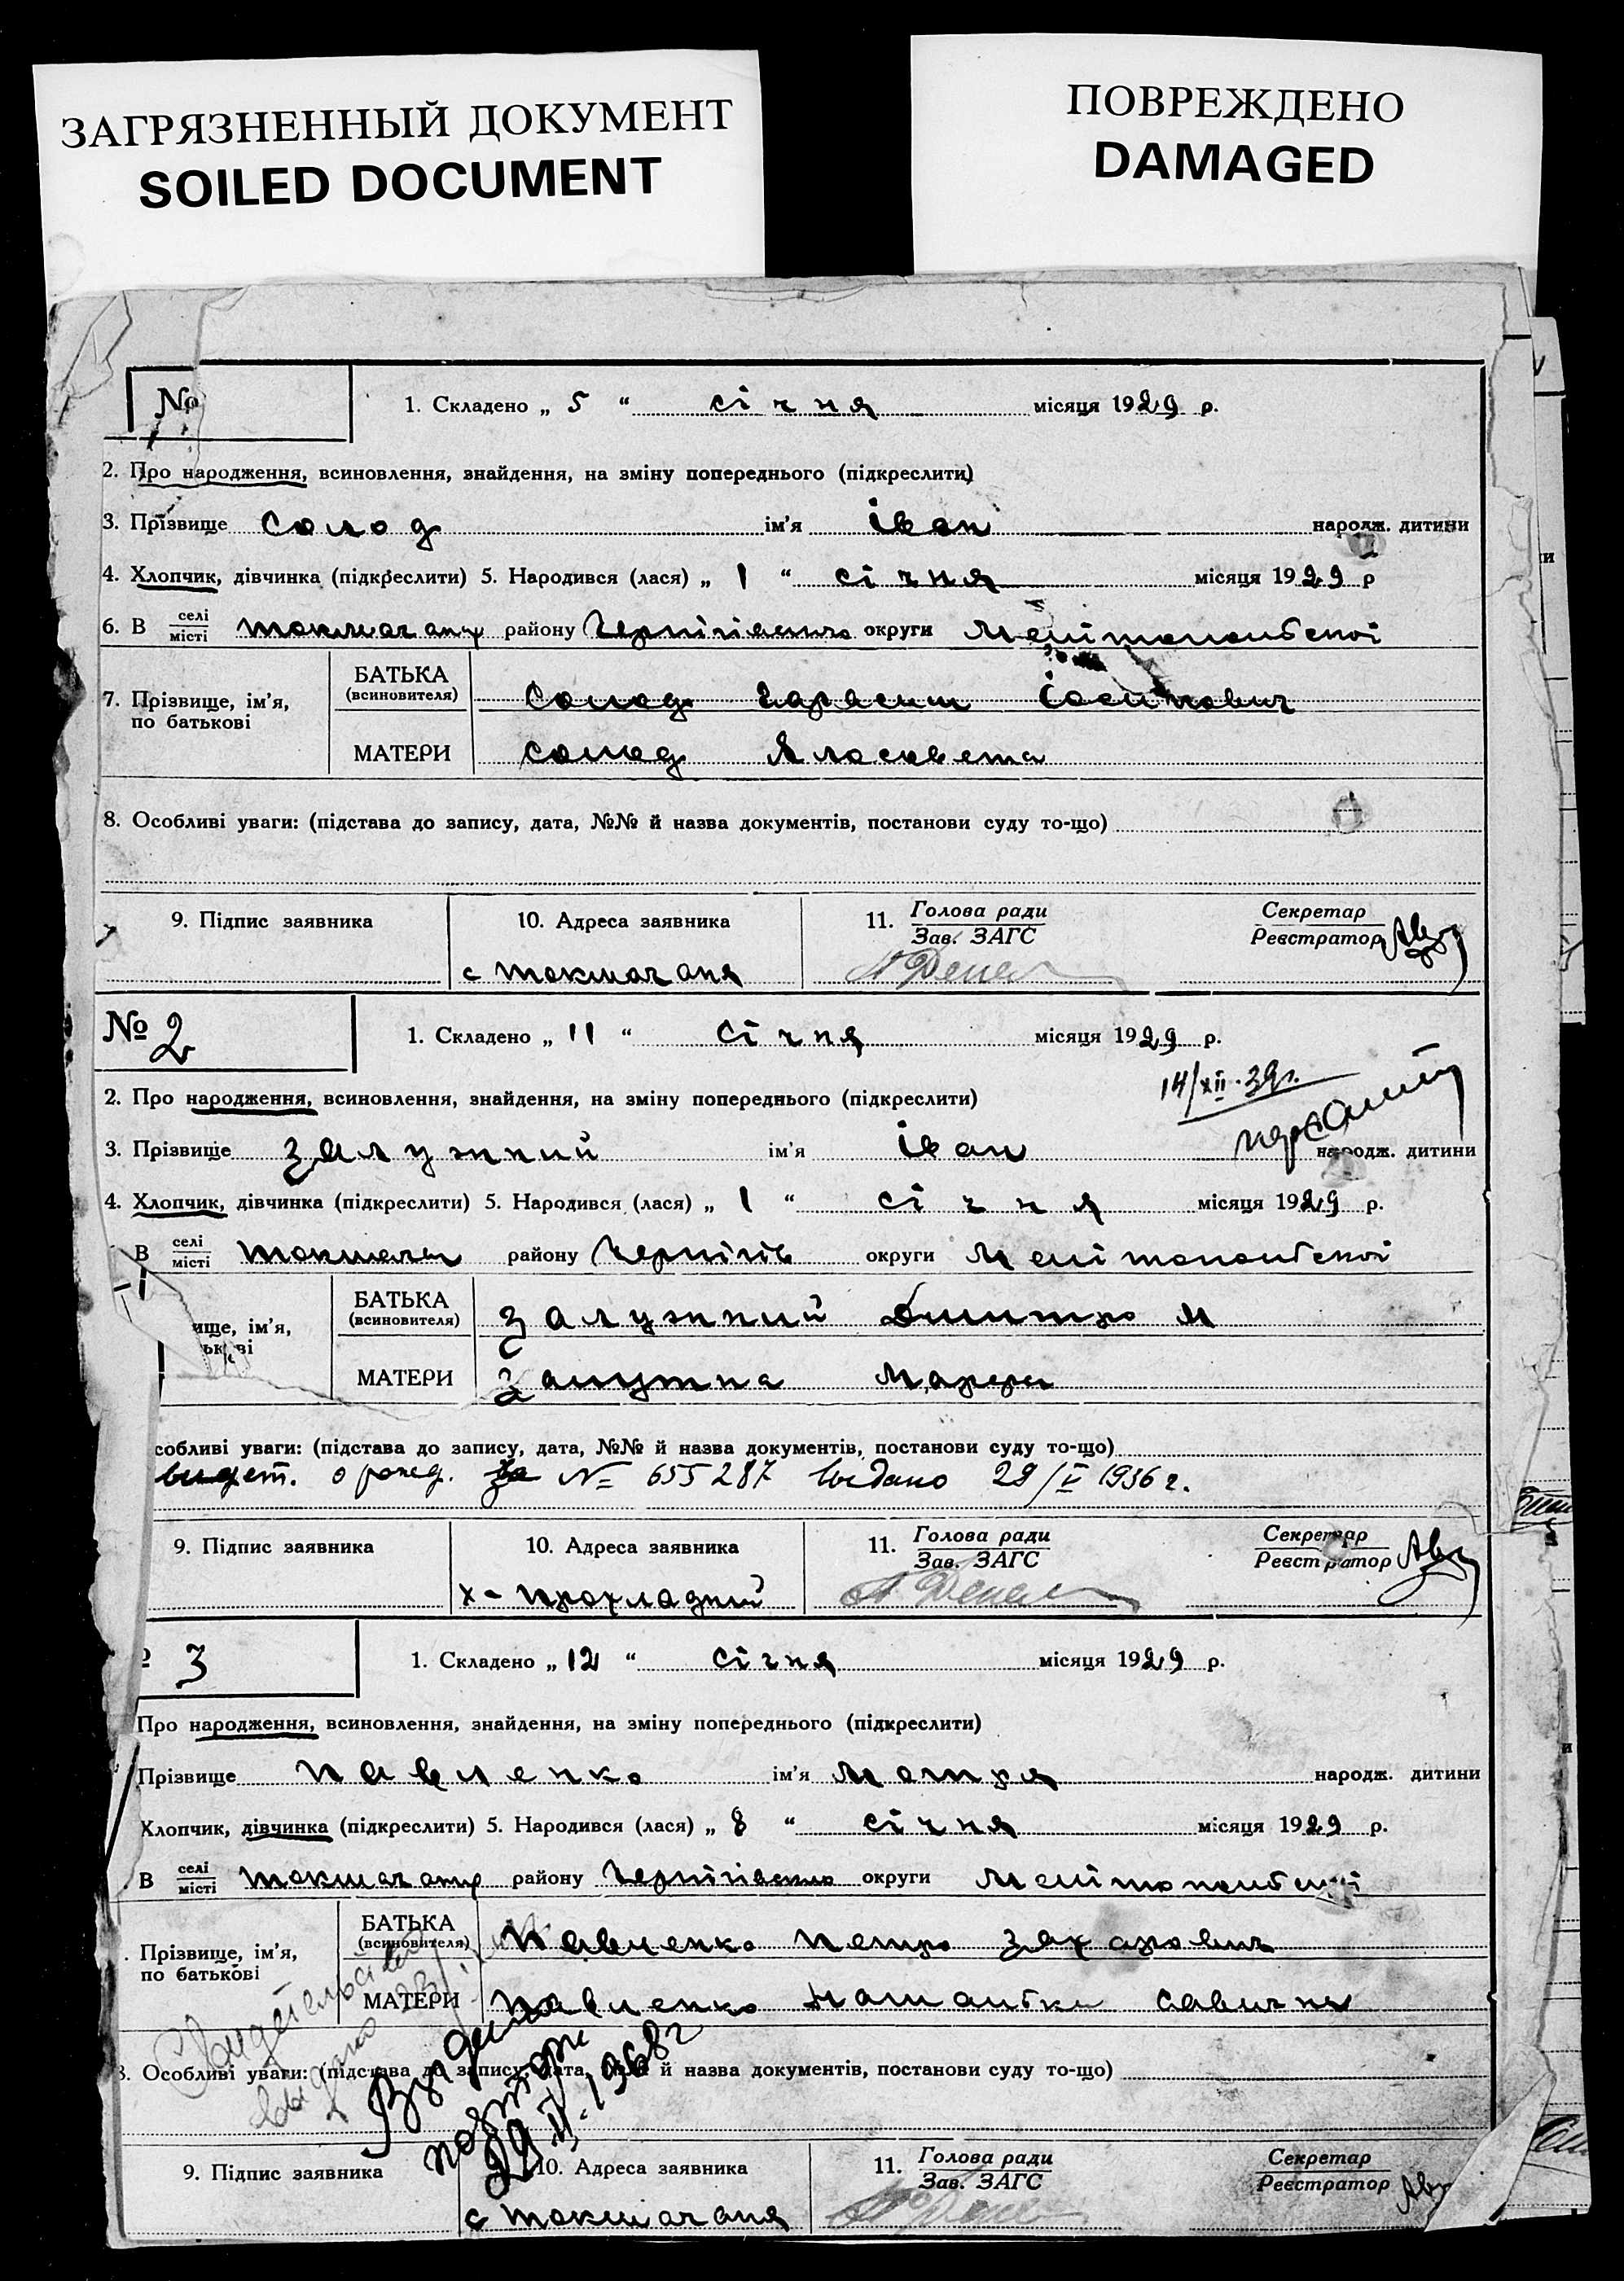 ЗАГРЯЗНЕННЫЙ ДОКУМЕНТ
SOILED DOCUMENT
ПОВРЕЖДЕНО
DAMAGED
№
1. Складено „ 5 “ січня місяця 1929 р.
2. Про народження, всиновлення, знайдення, на зміну попереднього (підкреслити)
3. Прізвище Солод ім'я Іван народж. дитини
4. Хлопчик, дівчинка (підкреслити) 5. Народився (лася) „ 1 “ січня місяця 1929 р
6. В селі місті району округи Мелітопольської
7. Прізвище, ім'я, по батькові
БАТЬКА (всиновителя) Солод Гарасим
МАТЕРИ Солод
8. Особливі уваги: (підстава до запису, дата, №№ й назва документів, постанови суду то-що)
9. Підпис заявника 10. Адреса заявника 11. Голова ради Зав. ЗАГС Секретар Реєстратор
с Токмачаня
№ 2
1. Складено „ 11 “ січня місяця 1929 р.
14/XII-39г.
2. Про народження, всиновлення, знайдення, на зміну попереднього (підкреслити)
3. Прізвище Залужний ім'я Іван народж. дитини
4. Хлопчик, дівчинка (підкреслити) 5. Народився (лася) „ 1 “ січня місяця 1929 р.
В селі місті району Чернігів округи Мелітопольської
ище, ім'я, ькові
БАТЬКА (всиновителя) Залужний Дмитро М
МАТЕРИ Залужна
собливі уваги: (підстава до запису, дата, №№ й назва документів, постанови суду то-що)
о рожд. за № 655287 выдано 29/V 1936 г.
9. Підпис заявника 10. Адреса заявника 11. Голова ради Зав. ЗАГС Секретар Реєстратор
х- Прохладний
3
1. Складено „ 12 “ січня місяця 1929 р.
Про народження, всиновлення, знайдення, на зміну попереднього (підкреслити)
Прізвище Павленко ім'я Мотря народж. дитини
Хлопчик, дівчинка (підкреслити) 5. Народився (лася) „ 8 “ січня місяця 1929 р.
В селі місті району округи Мелітопольської
Прізвище, ім'я, по батькові
БАТЬКА (всиновителя) Павленко Петро Захарович
МАТЕРИ Павленко Савична
8. Особливі уваги: (підстава до запису, дата, №№ й назва документів, постанови суду то-що)
9. Підпис заявника 10. Адреса заявника 11. Голова ради Зав. ЗАГС Секретар Реєстратор
с Токмачаня